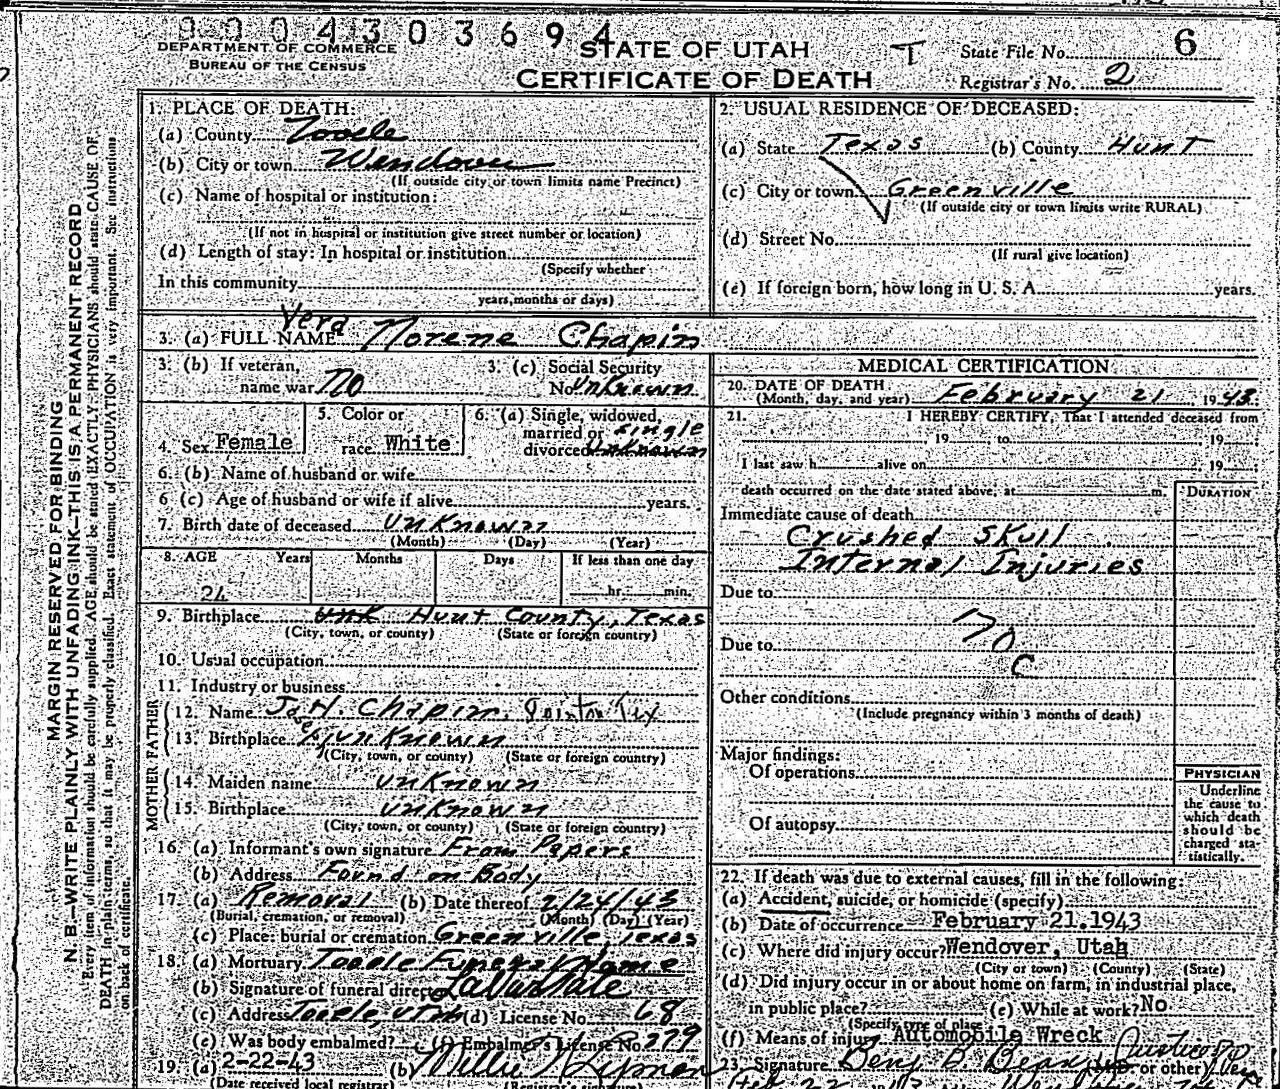 0004303694
DEPARTMENT OF COMMERCE
BUREAU OF THE CENSUS
STATE OF UTAH
CERTIFICATE OF DEATH
T
State File No. 6
Registrar's No. 2
MARGIN RESERVED FOR BINDING
N. B.—WRITE PLAINLY WITH UNFADING INK—THIS IS A PERMANENT RECORD
Every item of information should be carefully supplied. AGE should be stated EXACTLY. PHYSICIANS should state CAUSE OF
DEATH in plain terms, so that it may be properly classified. Exact statement of OCCUPATION is very important. See instructions
on back of certificate.
1. PLACE OF DEATH:
(a) County Tooele
(b) City or town Wendover
(If outside city or town limits name Precinct)
(c) Name of hospital or institution:
(If not in hospital or institution give street number or location)
(d) Length of stay: In hospital or institution
(Specify whether
In this community
years, months or days)
2. USUAL RESIDENCE OF DECEASED:
(a) State Texas (b) County Hunt
(c) City or town Greenville
(If outside city or town limits write RURAL)
(d) Street No.
(If rural give location)
(e) If foreign born, how long in U. S. A. years.
3. (a) FULL NAME Vera Norene Chapin
3. (b) If veteran,
name war no
3. (c) Social Security
No. Unknown
4. Sex Female
5. Color or
race White
6. (a) Single, widowed,
married or single
divorced Unknown
6. (b) Name of husband or wife
6 (c) Age of husband or wife if alive years.
7. Birth date of deceased unknown
(Month) (Day) (Year)
8. AGE Years Months Days If less than one day
24 hr. min.
9. Birthplace unk Hunt County, Texas
(City, town, or county) (State or foreign country)
10. Usual occupation
11. Industry or business
FATHER
12. Name Jas H. Chapin,
13. Birthplace unknown
(City, town, or county) (State or foreign country)
MOTHER
14. Maiden name unknown
15. Birthplace unknown
(City, town, or county) (State or foreign country)
16. (a) Informant's own signature From Papers
(b) Address Found on Body
17 (a) Removal (b) Date thereof 2/24/43
(Burial, cremation, or removal) (Month) (Day) (Year)
(c) Place: burial or cremation Greenville, Texas
18. (a) Mortuary Tooele Funeral Home
(b) Signature of funeral director
(c) Address Tooele, Utah (d) License No. 68
(e) Was body embalmed? (f) Embalmer's License No. 279
19. (a) 2-22-43 (b)
(Date received local registrar)
MEDICAL CERTIFICATION
20. DATE OF DEATH
(Month, day, and year) February 21, 1943.
21. I HEREBY CERTIFY, That I attended deceased from
, 19 to , 19
I last saw h alive on , 19
death occurred on the date stated above, at m.
DURATION
Immediate cause of death
Crushed Skull
Internal Injuries
Due to
170
Due to
C
Other conditions
(Include pregnancy within 3 months of death)
Major findings:
Of operations
Of autopsy
PHYSICIAN
Underline
the cause to
which death
should be
charged sta-
tistically.
22. If death was due to external causes, fill in the following:
(a) Accident, suicide, or homicide (specify)
(b) Date of occurrence February 21.1943
(c) Where did injury occur? Wendover, Utah
(City or town) (County) (State)
(d) Did injury occur in or about home on farm, in industrial place,
in public place? (e) While at work? No
(Specify type of place)
(f) Means of injury Automobile Wreck
23. Signature Benj B. (M.D. or other)